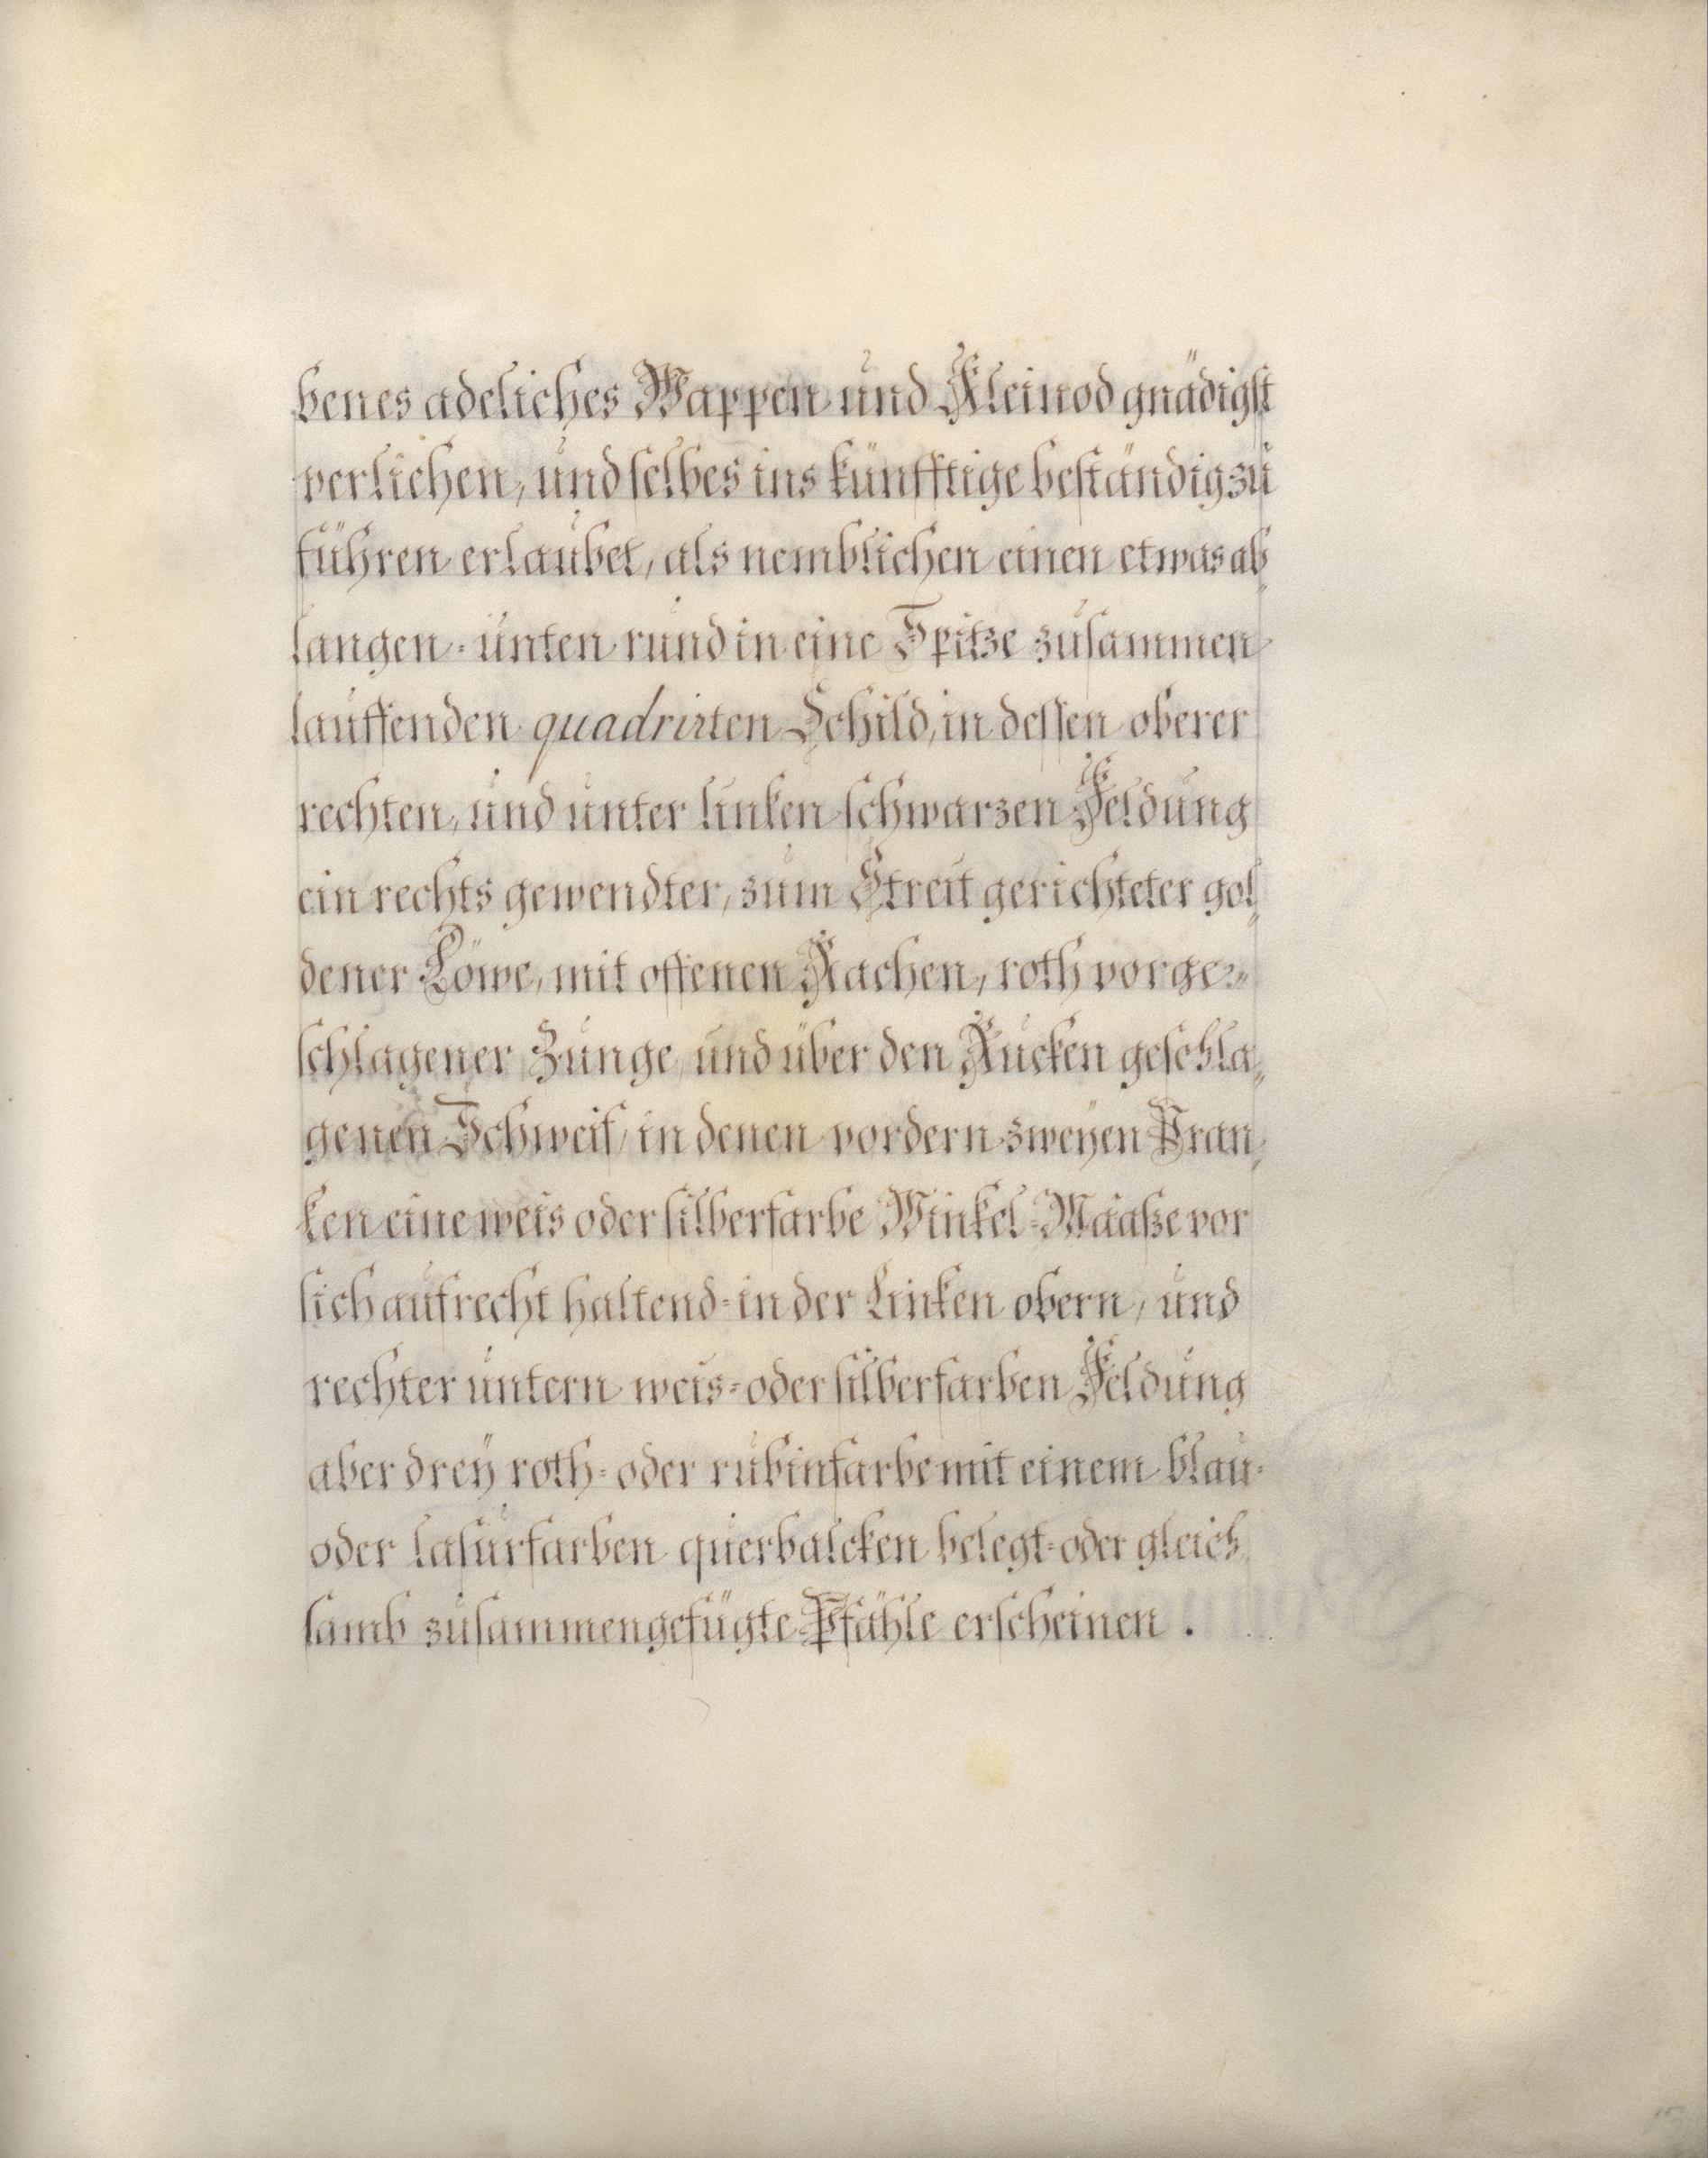 benes adeliches Wappen und Kleinod gnädigst
verliehen, und selbes ins künfftige beständig zu
führen erlaubet, als nemblichen einen etwas ab-
langen- unten rund in eine Spitze zusammen
lauffenden quadrirten Schild, in dessen oberer
rechten, und unter linken schwarzen Feldung
ein rechts gewendter, zum Streit gerichteter gol-
dener Löwe, mit offenen Rachen, roth vorge-
schlagener Zunge, und über den Rucken geschla-
genen Schweif, in denen vordern zweÿen Pran-
ken eine weis oder silberfarbe Winkel-Maaße vor
sich aufrecht haltend- in der Linken obern, und
rechter untern weis- oder silberfarben Feldung
aber dreÿ roth- oder rubinfarbe mit einem blau-
oder lasurfarben querbalcken belegt- oder gleich
samb zusammengefügte Pfähle erscheinen.